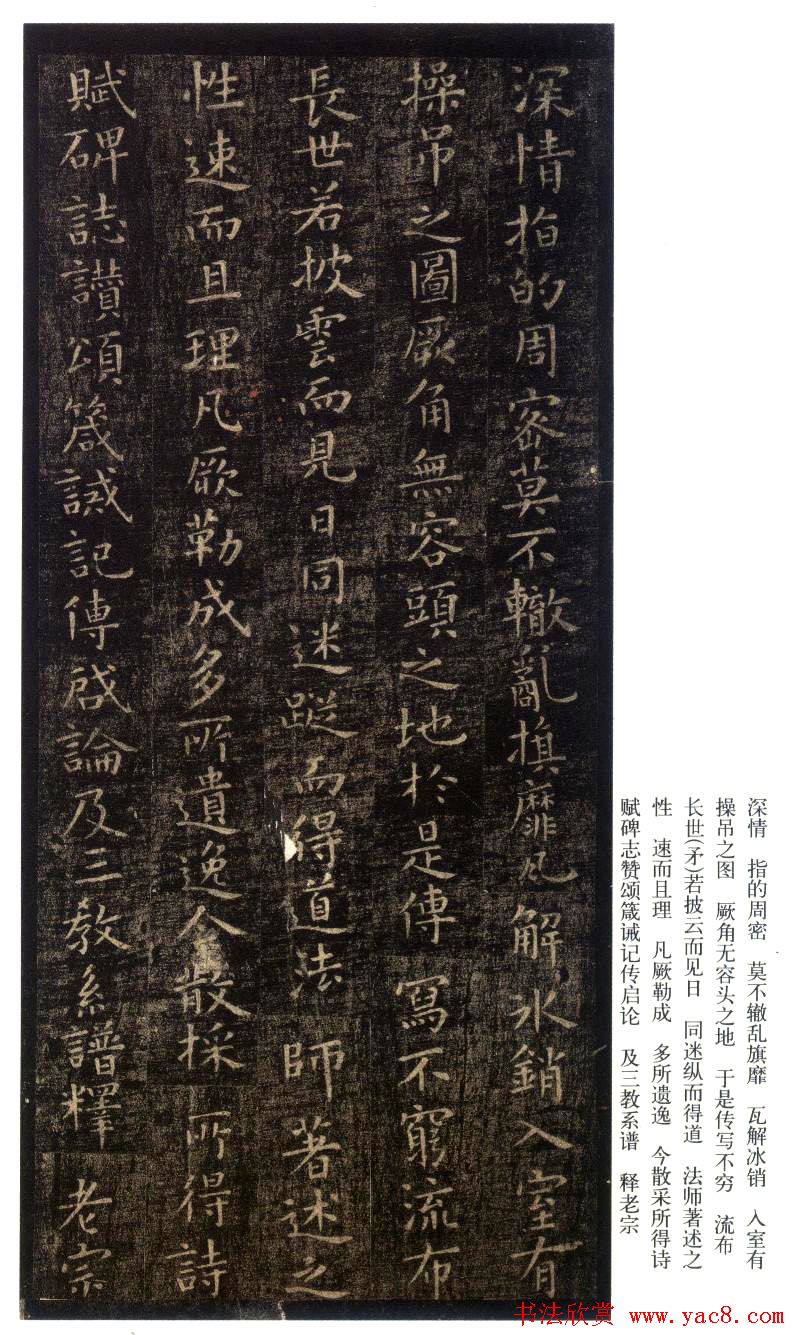 深情指的周密莫不轍亂旗靡瓦解冰銷入室有
操吊之圖厥角無容頭之地於是傳寫不窮流布
長世若披雲而見日同迷蹤而得道法師著述之
性速而且理凡厥勒成多所遺逸今散採所得詩
賦碑誌讃頌箴誡記傳啟論及三教系譜釋老宗
深情 指的周密 莫不辙乱旗靡 瓦解冰销 入室有
操吊之图 厥角无容头之地 于是传写不穷 流布
长世(矛)若披云而见日 同迷纵而得道 法师著述之
性 速而且理 凡厥勒成 多所遗逸 今散采所得诗
赋碑志赞颂箴诫记传启论 及三教系谱 释老宗
书法欣赏 www.yac8.com